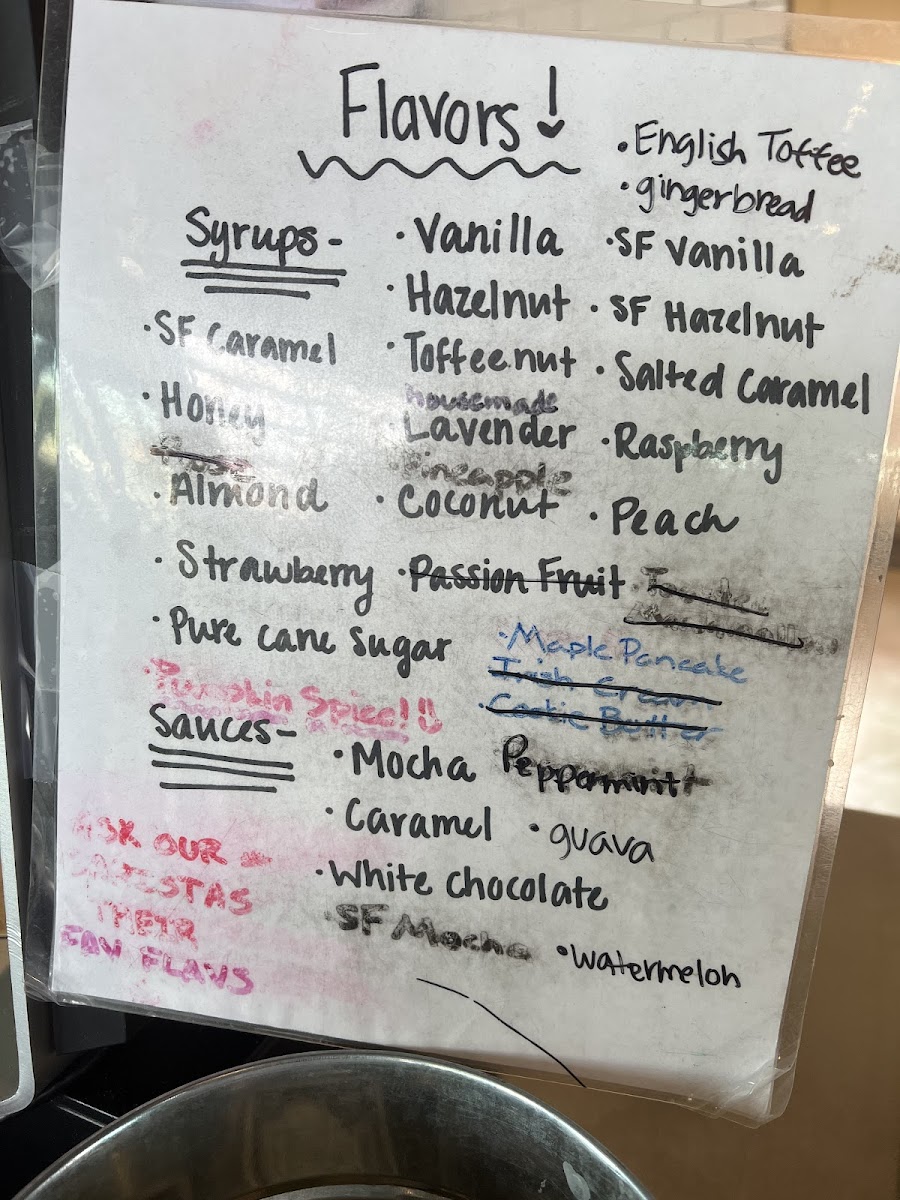 Flavors!
• English Toffee
• gingerbread
Syrups-
• Vanilla
• SF Vanilla
• Hazelnut
• SF Hazelnut
• SF Caramel
• Toffeenut
• Salted Caramel
• Honey
housemade
• Lavender
• Raspberry
Rose
Pineapple
• Almond
• Coconut
• Peach
• Strawberry
• Passion Fruit
• Pure cane sugar
• Maple Pancake
Irish Cream
• Pumpkin Spice!
• Cookie Butter
Sauces-
• Mocha
Peppermint
• Caramel
• guava
ASK OUR
BARISTAS
THEIR
FAV FLAVS
• White chocolate
• SF Mocha
• watermelon